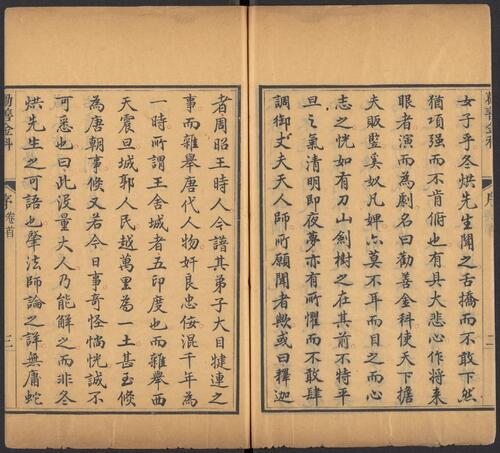 女子乎冬烘先生聞之舌撟而不敢下然
猶項强而不肯俯也有具大悲心作將来
眼者演而為劇名曰勸善金科使天下擔
夫販豎奚奴凡婢亦莫不耳而目之而心
志之恍如有刀山劍樹之在其前不特平
旦之氣清明即夜夢亦有所懼而不敢肆
調御丈夫天人師所願聞者歟或曰釋迦
勸善金科
序
二
者周昭王時人今譜其弟子大目犍連之
事而雜舉唐代人物奸良忠佞混千年為
一時所謂王舍城者五印度也而雜舉西
天震旦城郭人民越萬里為一土甚至候
為唐朝事候又若今日事奇怪惝恍誠不
可悉也曰此沒量大人乃能解之而非冬
烘先生之可語也肇法師論之詳無庸蛇
勸善金科
序
卷首
三